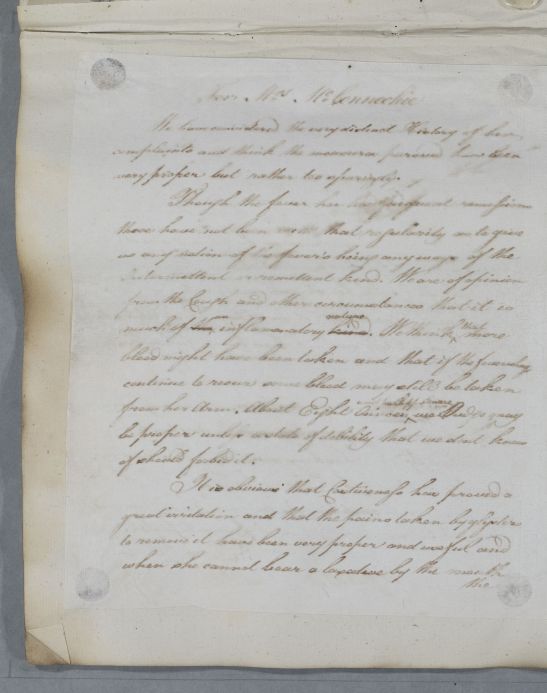 For Mrs. McConnochie
We have considered the very distinct History of her
complaints and think the measures pursued have been
very proper but rather too sparingly.
Though the fever has had frequent remissions
these have not been with that regularity as to give
us any notion of the fever's being any ways of the
Intermittent or remittent kind. We are of opinion
from the Cough and other circumstances that it is
much of inflammatory nature. We think that more
blood might have been taken and that if the fever
continue to recur some blood may still be taken
from her Arm. About Eight Ounces we think may
be proper unless a state of debility that we dont know
of should forbid it.
It is obvious that Costiveness has proved a
great irritation and that the pains taken by glyster
to remove it have been very proper and useful and
when she cannot bear a laxative by the mouth
the